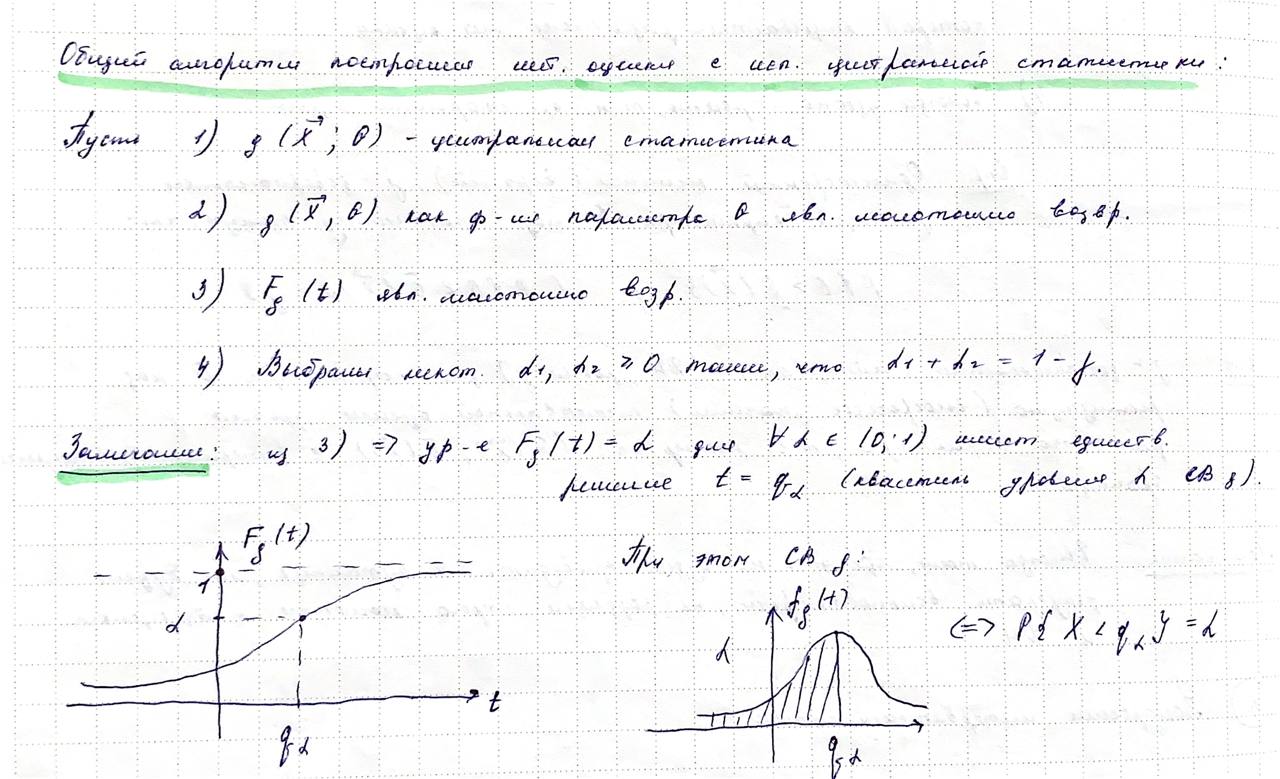 Общий алгоритм построения инт. оценки с исп. центральной статистики:
Пусть 1) g (X⃗; θ) - центральная статистика
2) g (X⃗, θ) как ф-ия параметра θ явл. монотонно возр.
3) F_g (t) явл. монотонно возр.
4) Выбраны некот. α1, α2 ⩾ 0 такие, что α1 + α2 = 1 - γ.
Замечание: из 3) => ур-е F_g (t) = α для ∀ α ∈ (0; 1) имеет единств.
решение t = q_α (квантиль уровня α СВ g).
F_g (t)
1
α
t
q_α
При этом СВ g:
f_g (t)
α
q_α
<=> P{ X < q_α } = α